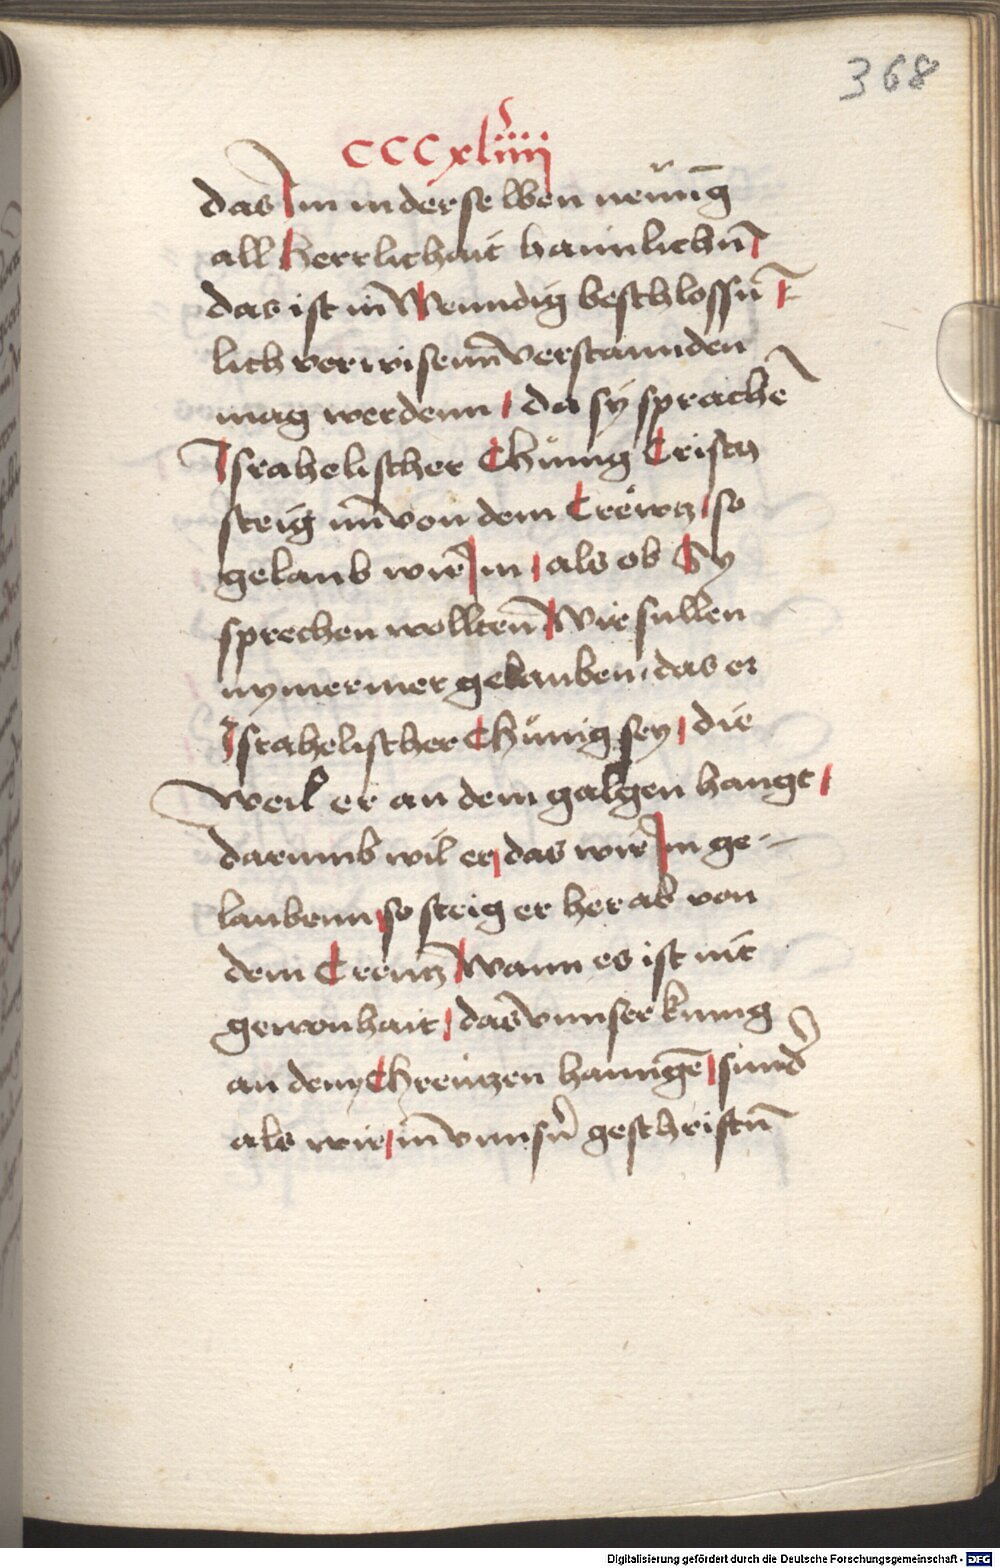 368
CCCxliiij
das Im in derselben nennūg
all herrlichait haimlichn̄
das ist in̄ Wenndig beschlossn̄
lich verwisenn̄ verstannden
mag werdenn da sÿ sprachē
Israhelischer Chünig Cristus
steig nn̄ von dem Crëwtz so
gelaub wir̄ Im als ob Sy
sprechen wolltenn̄ Wir sullen
nymermer gelauben das er
Israhelischer Chünig sey die
Weil er an dem galgen hangt
darumb wil er das wir̄ Im ge-
laubenn so steig er herab von
dem Creutz Wann es ist nit
gewonhait das vnnser kunig
an dem Chreutzen hanngē sund̄
als wir in̄ vnnsn̄ geschriftn̄
Digitalisierung gefördert durch die Deutsche Forschungsgemeinschaft - DFG